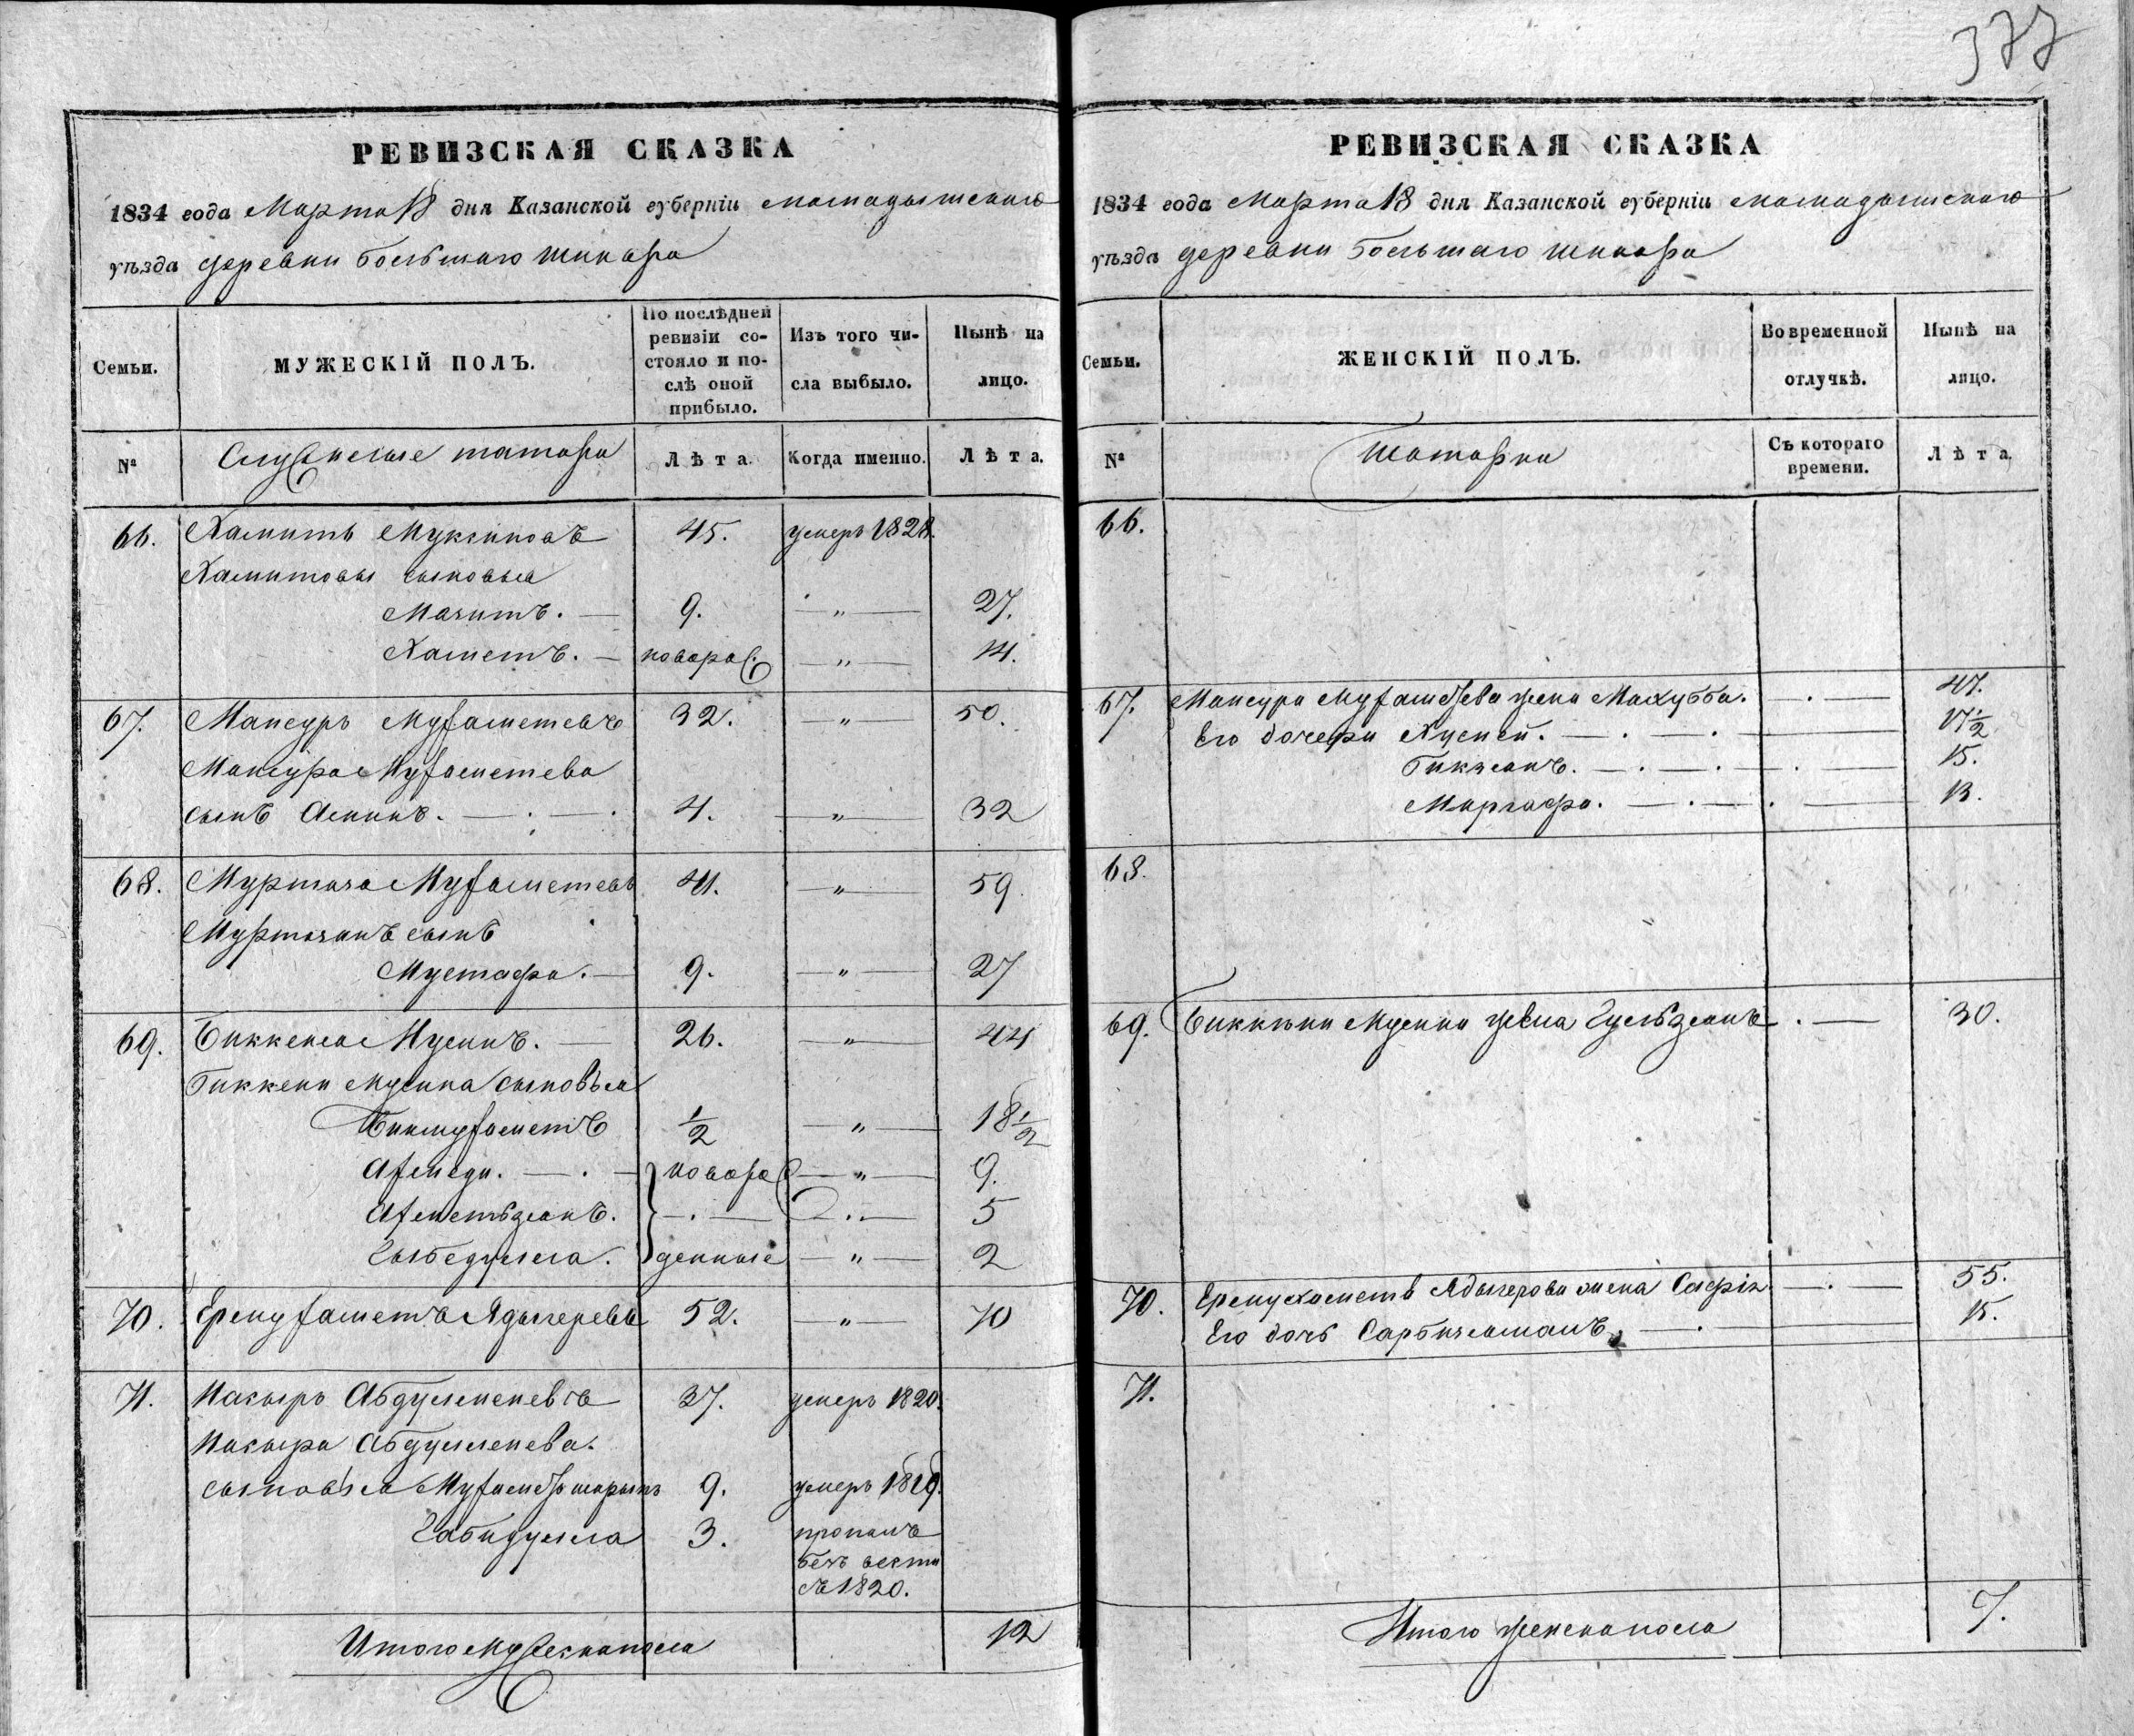 377
РЕВИЗСКАЯ СКАЗКА
1834 года Марта 18 дня Казанской губерніи Мамадышскаго
уѣзда деревни Большаго Шинара
Семьи.
МУЖЕСКІЙ ПОЛЪ.
По послѣдней ревизіи состояло и послѣ оной прибыло.
Изъ того числа выбыло.
Нынѣ на лицо.
№
Служилые татара
Лѣта.
Когда именно.
Лѣта.
66. Хамитъ Муксиновъ 45. умеръ 1828.
Хамитовы сыновья
Мазитъ. — 9. — „ — 27.
Хаметъ. — новорож. — „ — 14.
67. Мансуръ Мухаметевъ 32. — „ — 50.
Мансура Мухаметева
сынъ Аминъ. — 4. — „ — 32
68. Муртаза Мухаметевъ 41. — „ — 59
Муртазинъ сынъ
Мустафа. — 9. — „ — 27
69. Биккеня Мусинъ. — 26. — „ — 44
Биккени Мусина сыновья
Бикмухаметъ 1/2 — „ — 18 1/2
новорож — „ — 9.
Ахметьзянъ. — . — 5
денные — „ — 2
70. Ермухаметъ Ядыгеревъ 52. — „ — 70
71. Абдулменевъ 37. умеръ 1820.
Абдулменева.
сыновья 9. умеръ 1819.
Габидулла 3. пропалъ
безъ вести
съ 1820.
Итого мужеска пола 12
РЕВИЗСКАЯ СКАЗКА
1834 года Марта 18 дня Казанской губерніи Мамадышскаго
уѣзда деревни Большаго Шинара
Семьи.
ЖЕНСКІЙ ПОЛЪ.
Во временной отлучкѣ.
Нынѣ на лицо.
№
Татарки
Съ котораго времени.
Лѣта.
66.
67. Мансура жена Махубба. — 47.
Его дочери Хусней. — 17 1/2
Бикзянъ. — 15.
— 13.
68.
69. Биккени Мусина жена Гульзянъ — 30.
70. Ермухаметъ Ядыгерова жена Сафія — 55.
Его дочь — 15.
71.
Итого женска пола 7.